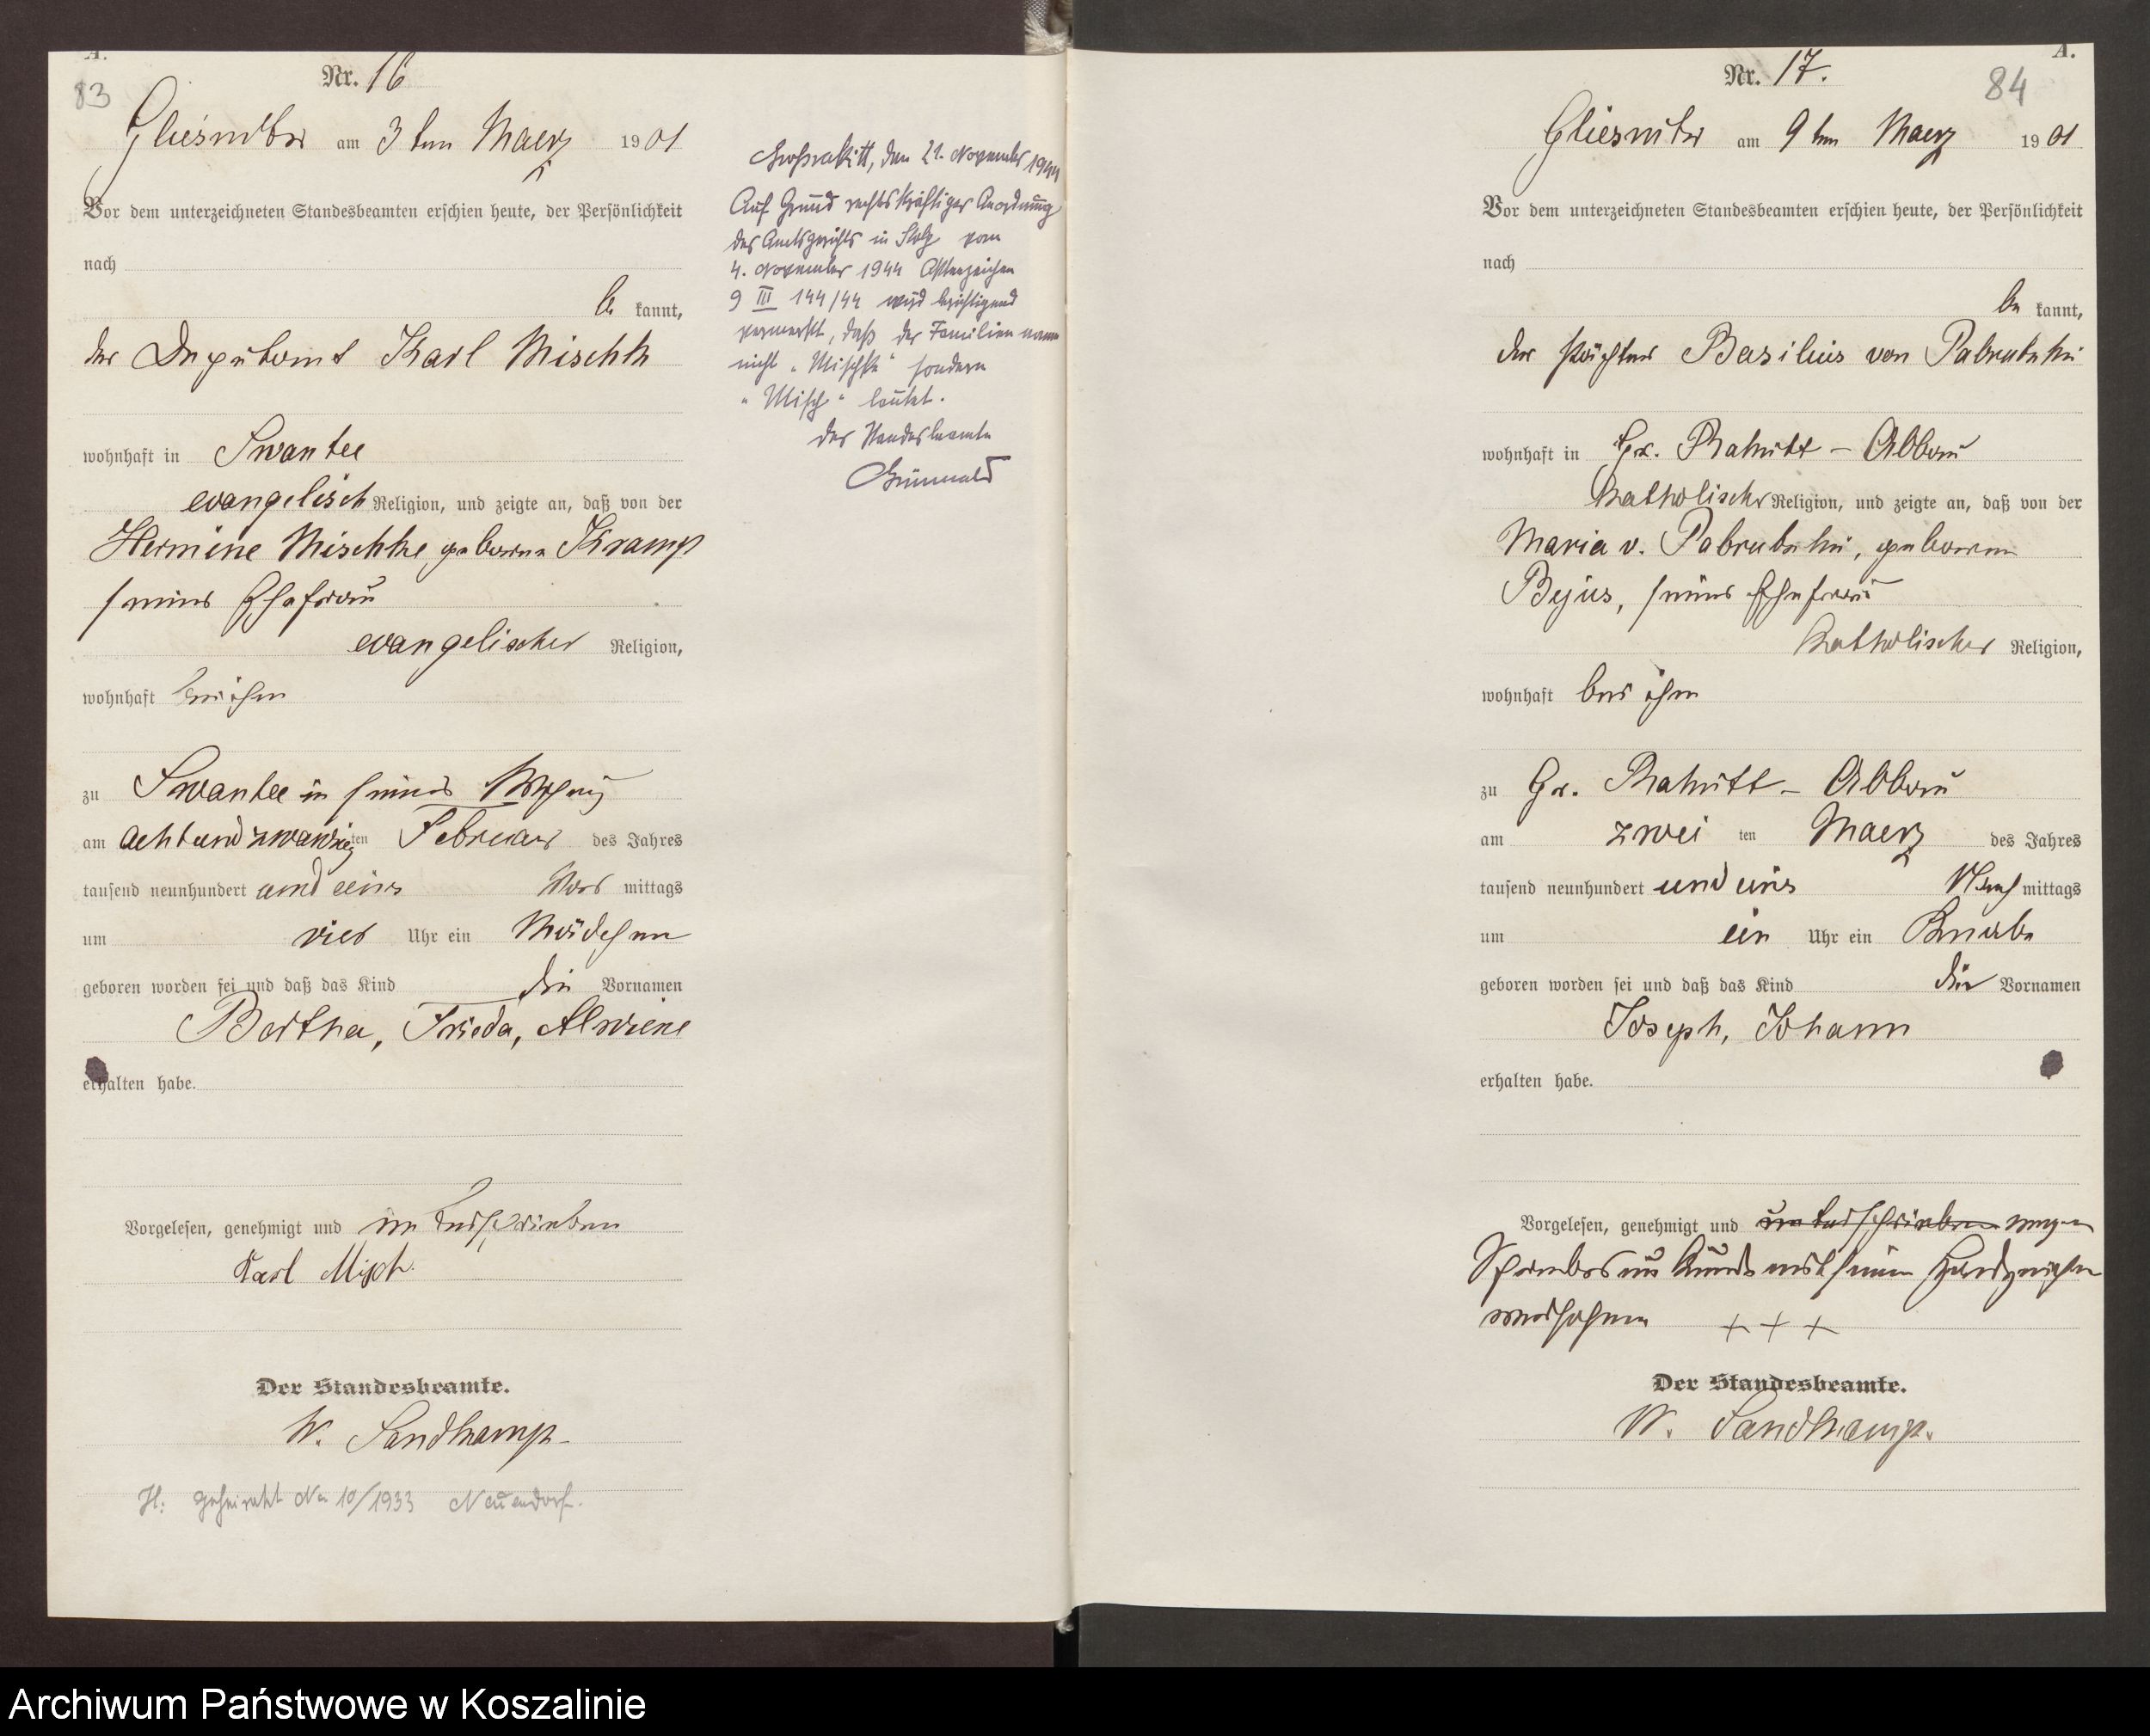 A.
83
Nr. 16
Gliesnitz am 3ten Maerz 1901
Vor dem unterzeichneten Standesbeamten erschien heute, der Persönlichkeit
nach
be kannt,
der Deputant Karl Mischke
wohnhaft in Swantee
evangelisch Religion, und zeigte an, daß von der
Hermine Mischke geborene Kramp
seiner Ehefrau
evangelischer Religion,
wohnhaft bei ihm
zu Swantee in seiner Wohnung
am achtundzwanzigten Februar des Jahres
tausend neunhundert und eins Vor mittags
um vier Uhr ein Mädchen
geboren worden sei und daß das Kind die Vornamen
Bertha, Frieda, Alwiene
erhalten habe.
Vorgelesen, genehmigt und unterschrieben
Karl Misch.
Der Standesbeamte.
W. Sandkamp
H: geheiratet No 10/1933 Neuendorf.
Großrakitt, den 21. November 1944
Auf Grund rechtskräftiger Anordnung
des Amtsgerichts in Stolp vom
4. November 1944 Aktenzeichen
9 III 144/44 wird berichtigend
vermerkt, daß der Familienname
nicht "Mischke" sondern
"Misch" lautet.
Der Standesbeamte
Grünwald
A.
84
Nr. 17.
Gliesnitz am 9ten Maerz 1901
Vor dem unterzeichneten Standesbeamten erschien heute, der Persönlichkeit
nach
be kannt,
der Pächter Basilius von Pabrutzki
wohnhaft in Gr. Rakitt - Abbau
katholischer Religion, und zeigte an, daß von der
Maria v. Pabrutzki, geborene
Bejus, seiner Ehefrau
katholischer Religion,
wohnhaft bei ihm
zu Gr. Rakitt - Abbau
am zwei ten Maerz des Jahres
tausend neunhundert und eins Nach mittags
um ein Uhr ein Knabe
geboren worden sei und daß das Kind die Vornamen
Joseph, Johann
erhalten habe.
Vorgelesen, genehmigt und unterschrieben wegen
Schreibensunkunde mit seinem Handzeichen
versehen + + +
Der Standesbeamte.
W. Sandkamp.
Archiwum Państwowe w Koszalinie